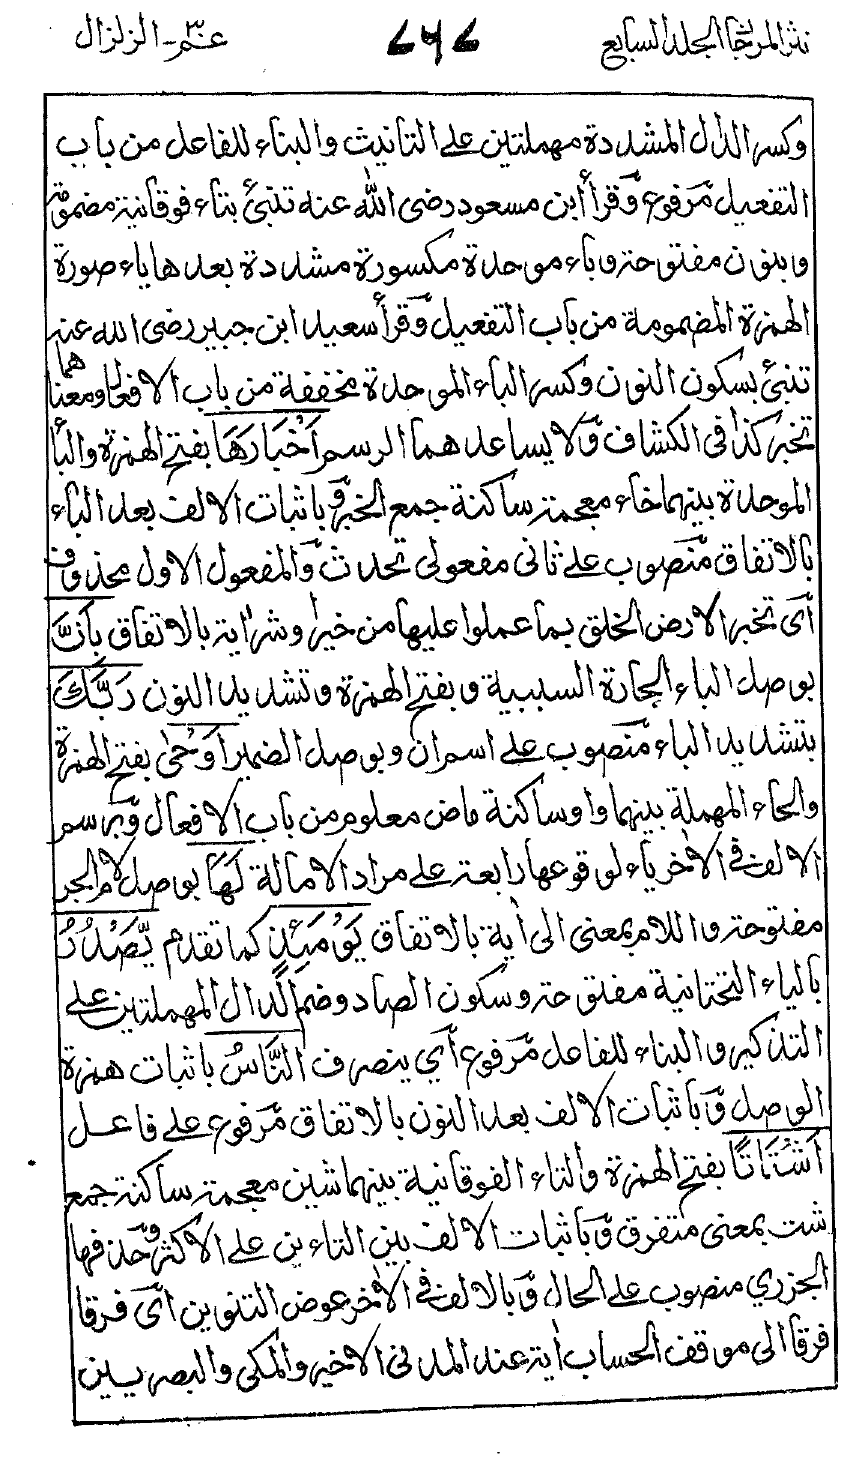 نثر المرجان المجلد السابع ٧٦٧ عم - الزلزال
وكسر الدال المشددة مهملتين على التانيث والبناء للفاعل من باب
التفعيل مرفوع وقرأ ابن مسعود رضى الله عنه تنبئ بتاء فوقانية مضمومة
وبنون مفتوحة وباء موحدة مكسورة مشددة بعدها ياء صورة
الهمزة المضمومة من باب التفعيل وقرأ سعيد ابن جبير رضى الله عنه
تنبئ بسكون النون وكسر الباء الموحدة مخففة من باب الافعال ومعناهما
تخبر كذا فى الكشاف ولا يساعدهما الرسم أَخْبَارَهَا بفتح الهمزة والبأ
الموحدة بينهما خاء معجمة ساكنة جمع الخبر وباثبات الالف بعد الباء
بالاتفاق منصوب على ثانى مفعولى تحدث والمفعول الاول محذوف
أى تخبر الارض الخلق بما عملوا عليها من خير وشر اية بالاتفاق بِأَنَّ
بوصل الباء الجارة السببية وبفتح الهمزة وتشديد النون رَبَّكَ
بتشديد الباء منصوب على اسم ان وبوصل الضمير أَوْحٰى بفتح الهمزة
والحاء المهملة بينهما واو ساكنة ماض معلوم من باب الافعال وبرسم
الالف فى الاخر ياء لوقوعها رابعة على مراد الامالة لَهَا بوصل لام الجر
مفتوحة واللام بمعنى الى أية بالاتفاق يَوْمَئِذٍ كما تقدم يَّصْدُرُ
بالياء التحتانية مفتوحة وسكون الصاد وضم الدال المهملتين على
التذكير والبناء للفاعل مرفوع أي ينصرف النَّاسُ باثبات همزة
الوصل وباثبات الالف بعد النون بالاتفاق مرفوع على فاعل
أَشْتَاتًا بفتح الهمزة والتاء الفوقانية بينهما شين معجمة ساكنة جمع
شت بمعنى متفرق وباثبات الالف بين التاءين على الاكثر وحذفها
الجزري منصوب على الحال وبالالف فى الأخر عوض التنوين أى فرقا
فرقا الى موقف الحساب أية عند المدنى الاخير والمكى والبصريين